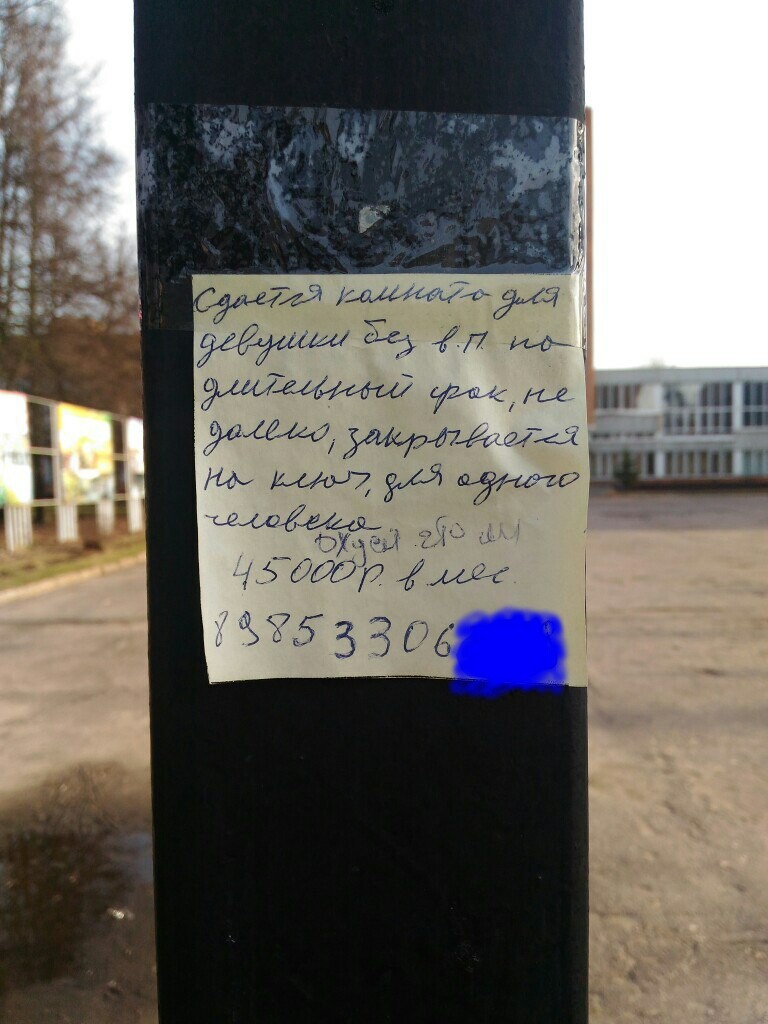 Сдается комната для
девушки без в.п. на
длительный срок, не
далеко, закрывается
на ключ, для одного
человека
45000р. в мес.
89853306